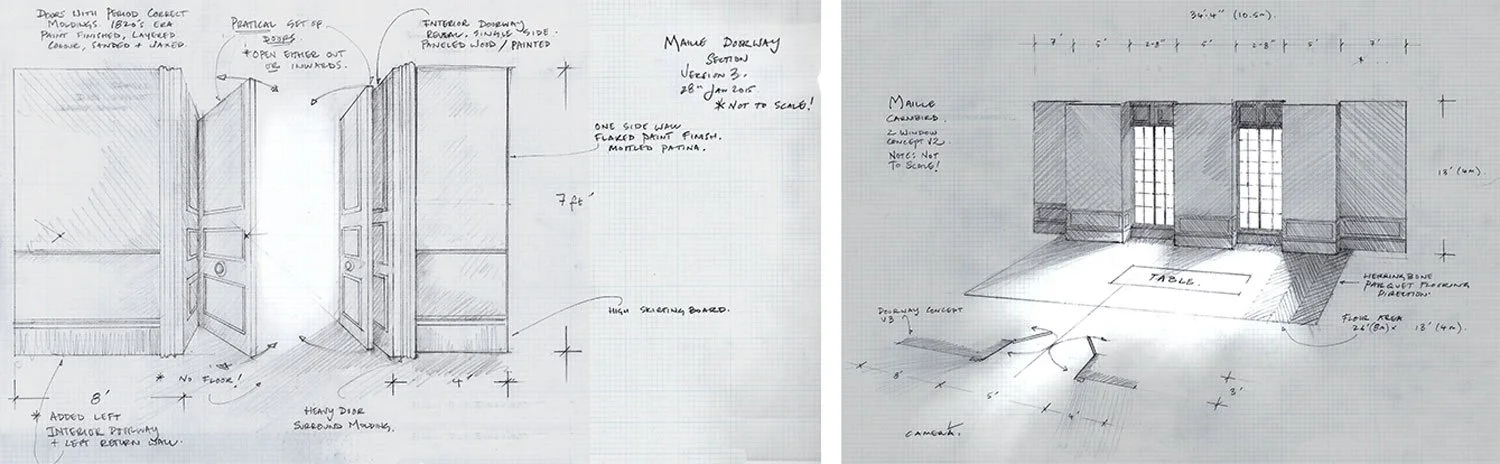 DOORS WITH PERIOD CORRECT
MOLDINGS 1820'S ERA
PAINT FINISHED, LAYERED
COLOUR, SANDED & WAXED.
PRATICAL SET OF
DOORS
*OPEN EITHER OUT
OR INWARDS.
INTERIOR DOORWAY
REVEAL, SINGLE SIDE
PANELED WOOD / PAINTED
MAILLE DOORWAY
SECTION
VERSION 3.
28TH JAN 2015
*NOT TO SCALE!
ONE SIDE WALL
FLARED PAINT FINISH.
MOTTLED PATINA.
7ft'
HIGH SKIRTING BOARD.
* NO FLOOR!
8'
4'
* ADDED LEFT
INTERIOR DOORWAY
+ LEFT RETURN WALL.
HEAVY DOOR
SURROUND MOLDING.
34'-4" (10.5m).
7' 5' 2-8" 5' 2-8" 5' 7'
MAILLE
2 WINDOW
CONCEPT V2.
NOTE: NOT
TO SCALE!
13' (4m).
TABLE.
HERRINGBONE
PARQUET FLOORING
DIRECTION.
FLOOR AREA
26'(8m) x 13' (4m).
DOORWAY CONCEPT
V3
8'
5'
4'
3'
CAMERA.